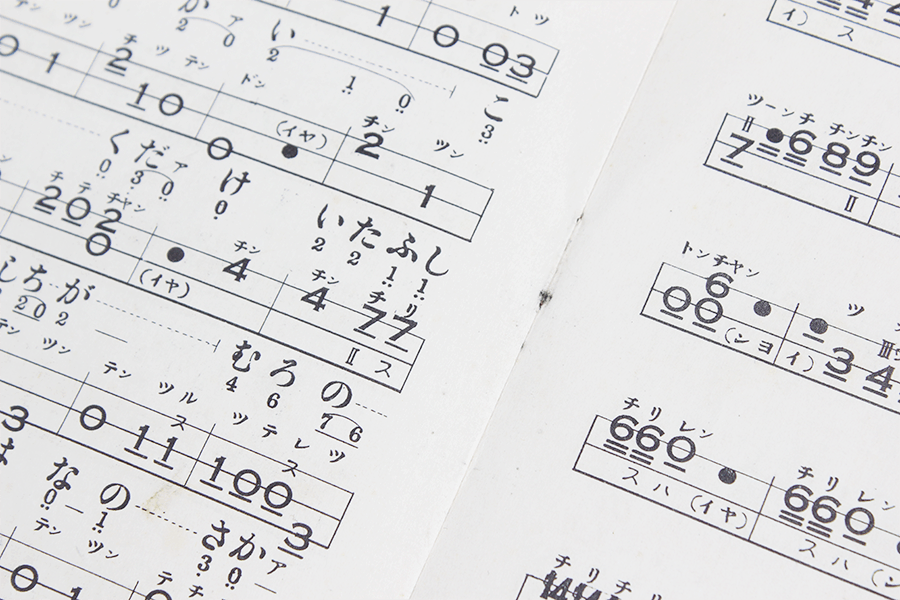 ァ
2 0
い
2 1 0
こ
3
1 0 03
トツ
0 1 2 10
チ ツ テン
ドン
0 (イヤ) ● 2 1
チン ツン
く だァ け
0 3 0 0
い た ふ し
2 2 1 1
チ テ チャン
202 0 ● 4 4 77
(イヤ) チン チン チリ
II ス
ち が
2 0 2
む ろ の
4 6 7 6
ツン テン ツル ツテレツ
ス ス
3 0 11 100 3
な の さ か ァ
0 1 3 0
テン ツン テ チ
0 1
イ) ス
ツーンチ チンチン
II
7 ●6 89
II
トンチャン ツ
6
00 ● ● 3 4
(ンヨ イ)
チリレン
660 ●
スハ (イヤ)
チリレン
660
スハ (ン
チリチ